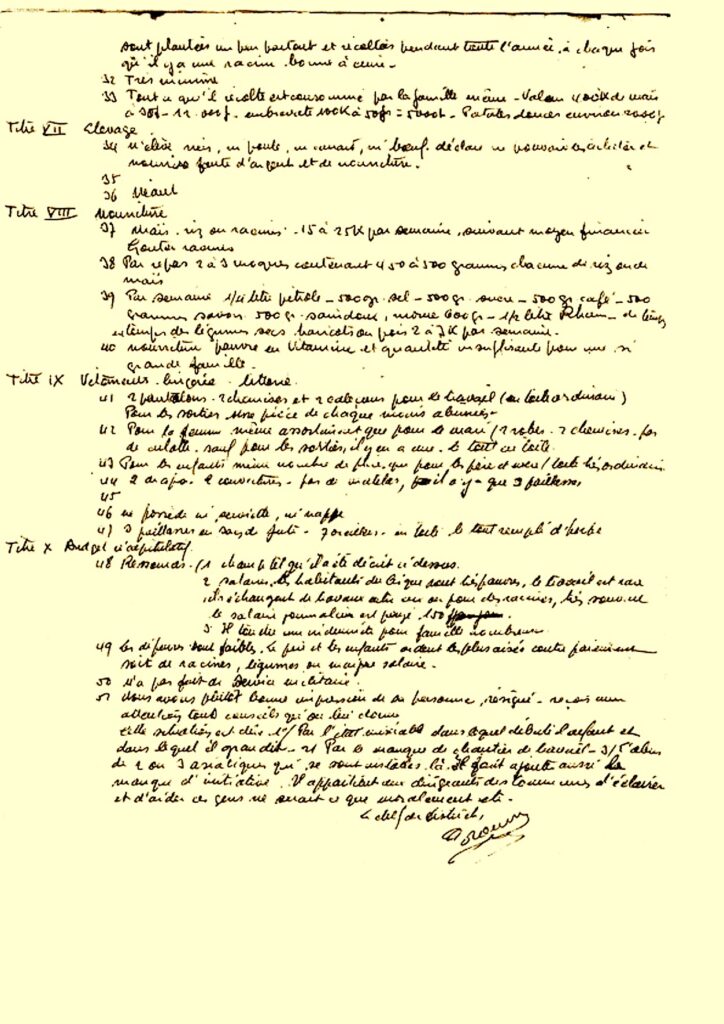 sont plantées un peu partout et récoltés pendant toute l'année, à chaque fois
qu'il y a une racine bonne à cuire -
32 Très minime
33 Tout ce qu'il récolte est consommé par la famille même - Valeur 400K de maïs
à 30f - 12.000f. 100K à 50frs = 5000f - Patates douces environ 2000f
Titre VII Elevage
34 n'élève rien, ni poule, ni canard, ni bœuf. déclare ne pouvoir en acheter et
nourrir faute d'argent et de nourriture.
35
36 Néant
Titre VIII Nourriture
37 Maïs - riz ou racines - 15 à 25K par semaine, suivant moyen financier
racines
38 Par repas 2 à 3 moques contenant 450 à 500 grammes chacune de riz ou de
maïs
39 Par semaine 1/4 litre pétrole - 500gr. sel - 500gr. sucre - 500gr café - 500
grammes savon 500gr. saindoux, morue 600gr - 1/2 litre Rhum - de temps
en temps des légumes secs haricots ou pois 2 à 3K par semaine.
40 nourriture pauvre en Vitamine et quantité insuffisante pour une si
grande famille.
Titre IX Vêtements - lingerie - literie
41 2 pantalons - 2 chemises et 2 caleçons pour le travail (en toile ordinaire)
Pour les sorties une pièce de chaque moins abimées -
42 Pour la femme même assortiment que pour le mari / 2 robes - 2 chemises - pas
de culotte sauf pour les sorties, il y en a une - le tout en toile
43 Pour les enfants même nombre de pièce que pour les père et mère / toile très ordinaire
44 2 draps - 2 couvertures - pas de matelas, il n'y a que 3 paillasses
45
46 ne possède ni serviette, ni nappe
47 3 paillasses en sacs de jute - 7 oreillers - en toile - le tout rempli d'herbe
Titre X Budget récapitulatif
48 Ressources - /1 champ tel qu'il a été décrit ci dessus.
2 salaires, les habitants de l'ique sont très pauvres, le travail est rare
ils échangent de travaux entre eux ou pour des racines, très souvent
le salaire journalier est payé 150
3 Il touche une indemnité pour famille nombreuse
49 Les dépenses sont faibles. Le père et les enfants aident les plus aisés contre paiement
soit de racines, légumes ou maigre salaire.
50 n'a pas fait de service militaire.
51 Nous avons plutôt bonne impression de sa personne, résigné - reçois avec
attention tout conseils qu'on lui donne
Cette situation est due 1°/ Par l'état misérable dans lequel débute l'enfant et
dans lequel il grandit - 2/ Par le manque de chantier de travail - 3/ d'abus
de 2 ou 3 asiatiques qui se sont installés là. Il faut ajouter aussi le
manque d'initiative. Il appartient aux dirigeants des Communes d'éclairer
et d'aider ces gens ne serait ce que moralement
Le chef de district,